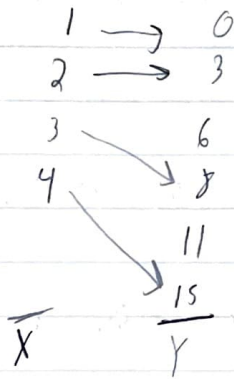 1 → 0
2 → 3
3 6
4 8
11
15
X Y